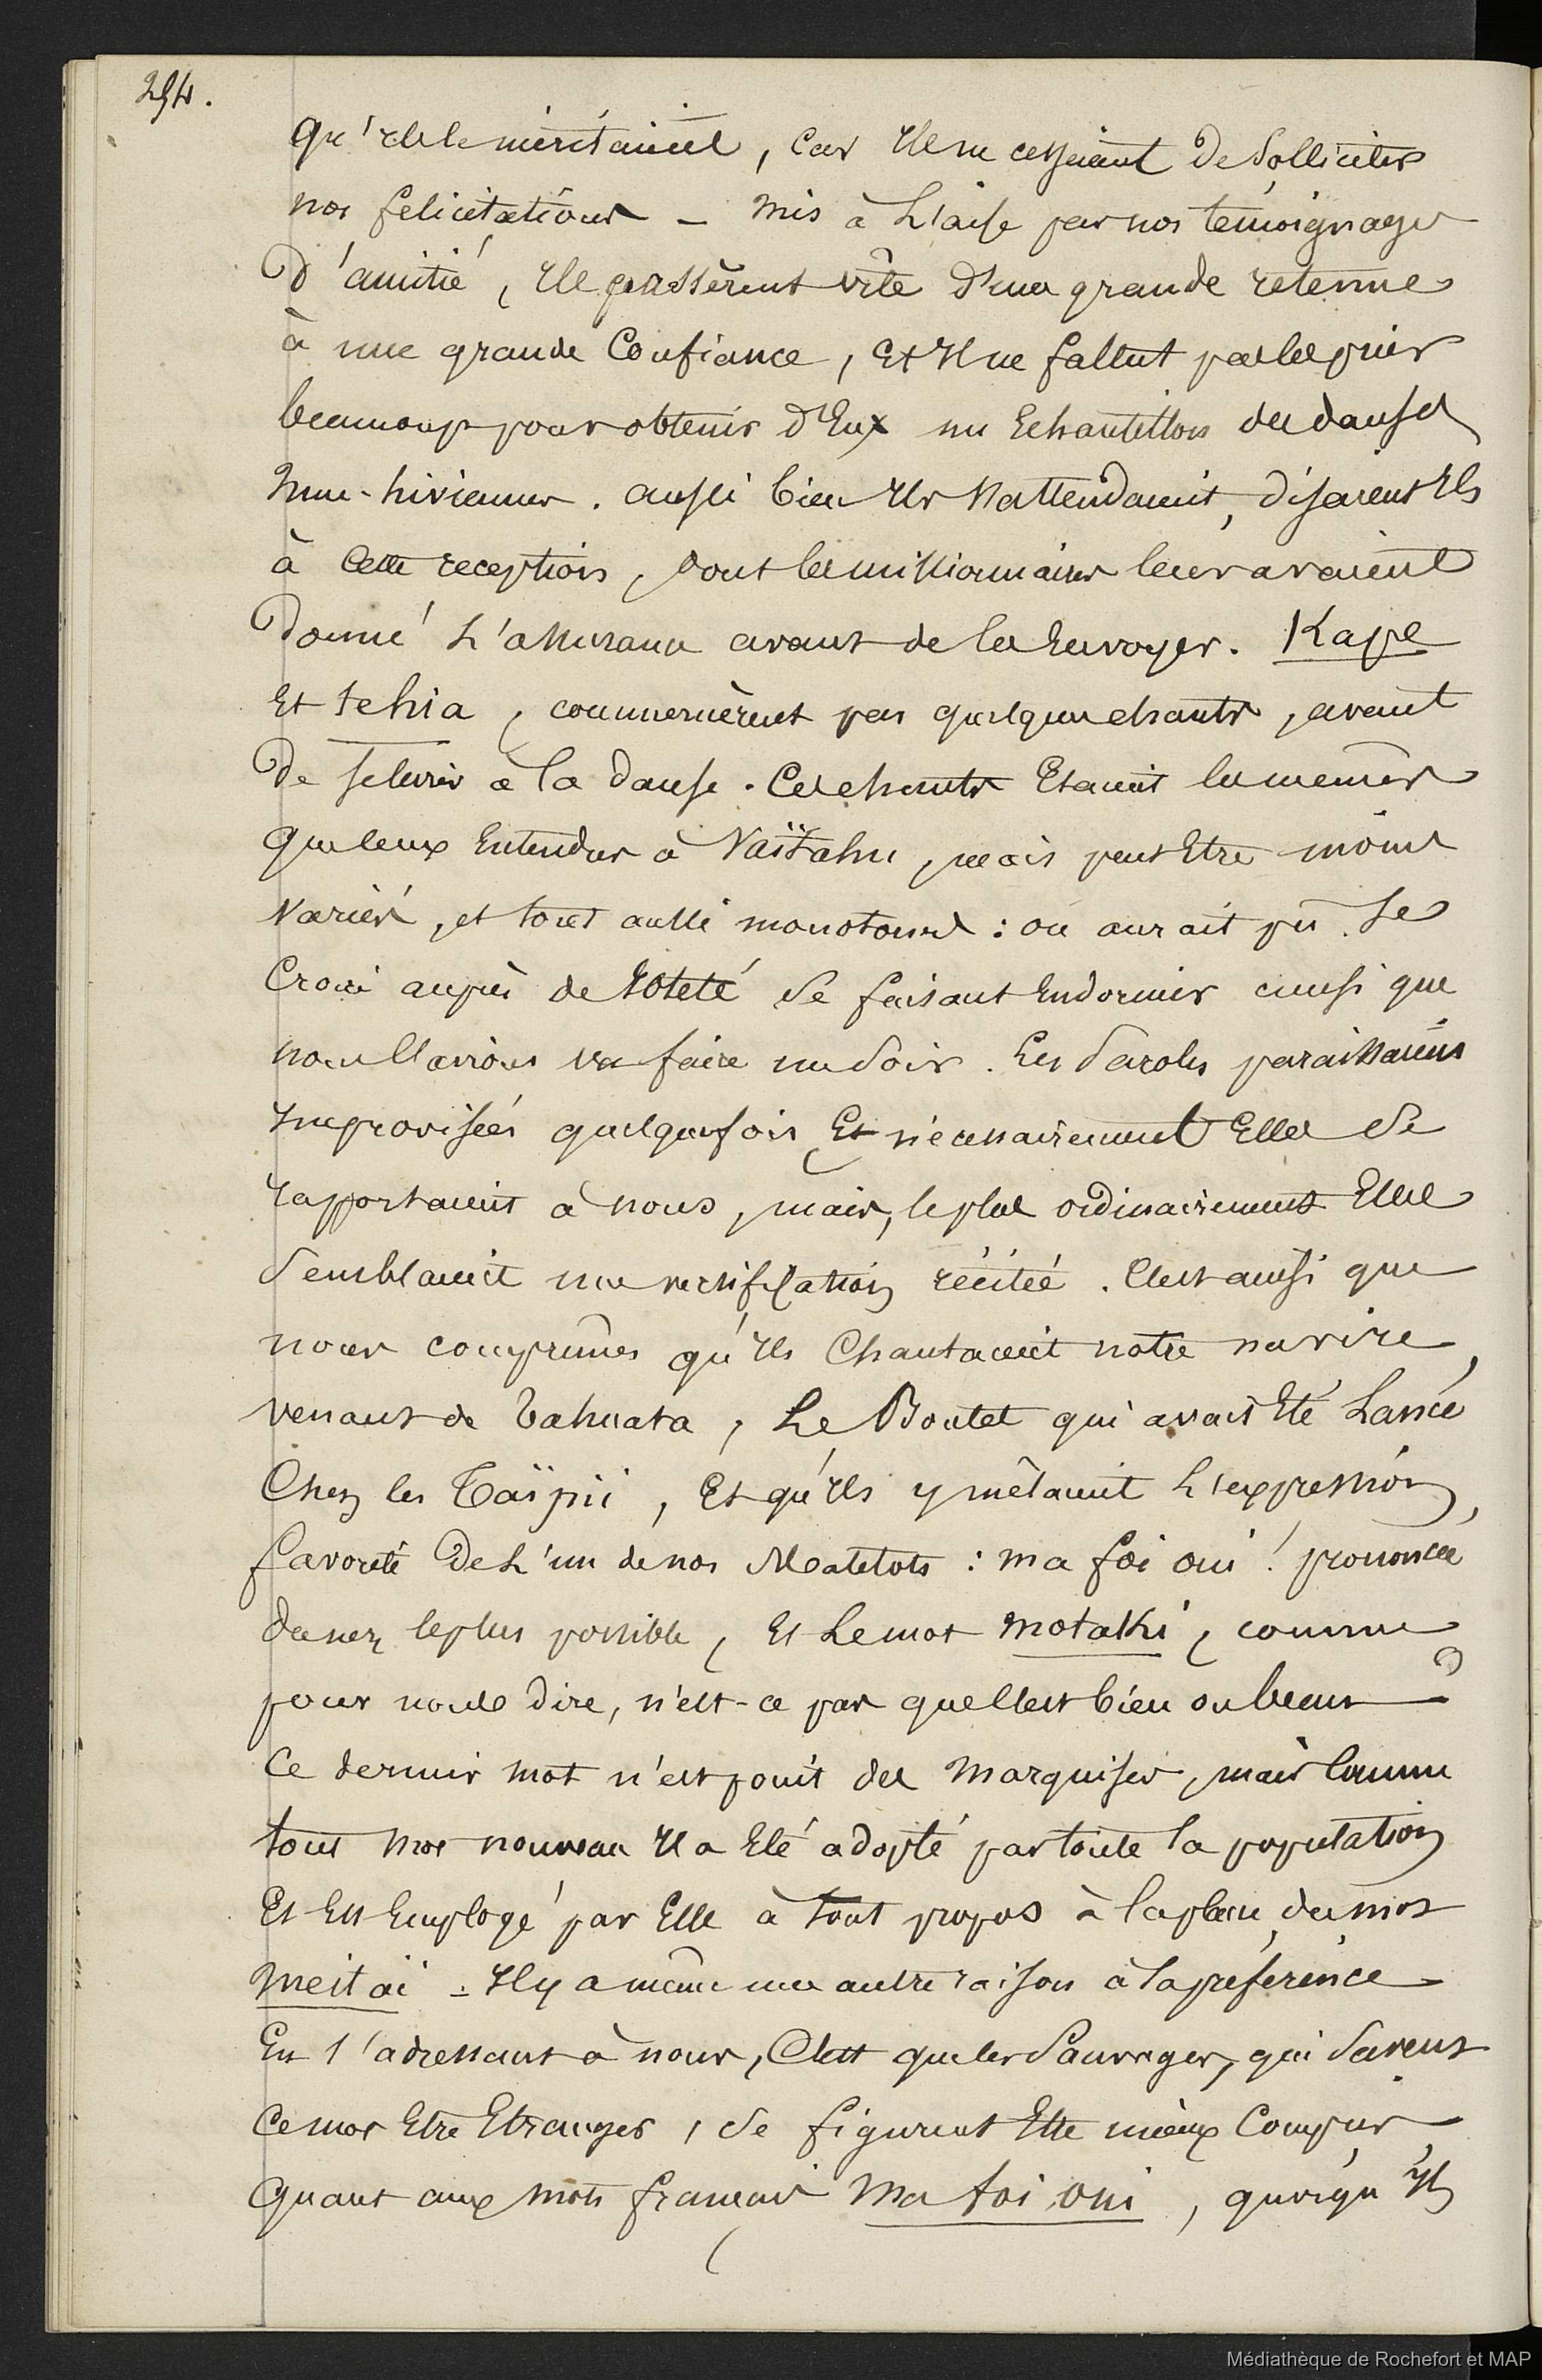 294.
qu'ils le méritaient, Car Ils ne cessaient De Solliciter
nos felicitations – Mis à L'aise par nos temoignages
D'amitié, Ils passèrent vîte D'une grande retenue
à une grande Confiance, Et Il ne fallut pas les prier
beaucoup pour obtenir D'Eux un Echantillon des danses
Nuu-hiviennes. aussi bien Ils S'attendaient, disaient Ils
à Cette reception, dont les missionnaires leur avaient
Donné L'assurance avant de les Envoyer. Kape
Et tehia, commencèrent par quelques chants, avant
De se livrer à la danse. Ces chants Etaient les mêmes
que ceux Entendus à Vaïtahu, mais peut Etre moins
Variés, et tout aussi monotones : on aurait pû se
Croire auprès de Iotété Se faisant Endormir ainsi que
nous l'avions vu faire un Soir. Les Paroles paraissaient
Improvisées quelquefois Et nécessairement Elles Se
rapportaient à nous, mais, le plus ordinairement Elles
Semblaient une versification récitée. C'est ainsi que
nous comprîmes qu'Ils Chantaient notre navire,
venant de Tahuata, Le Boulet qui avait Eté Lancé
Chez les Taïpii, Et qu'Ils y mêlaient L'expression,
favorite De L'un de nos Matelots : ma foi oui ! prononcée
du nez le plus possible, Et Le mot motaki, comme
pour nous dire, n'est-ce pas que c'est bien ou beau ?
Ce dernier mot n'est point des Marquises, mais Comme
tout mot nouveau Il a Eté adopté par toute la population
Et Est Employé par Elle à tout propos à la place du mot
meitaï. – Il y a même une autre raison à la préference
En s'adressant à nous, C'est que les Sauvages, qui Savent
Ce mot Etre Etranger, Se figurent Etre mieux Compris
Quant aux mots français Ma foi oui, quoiqu'Ils
Médiathèque de Rochefort et MAP